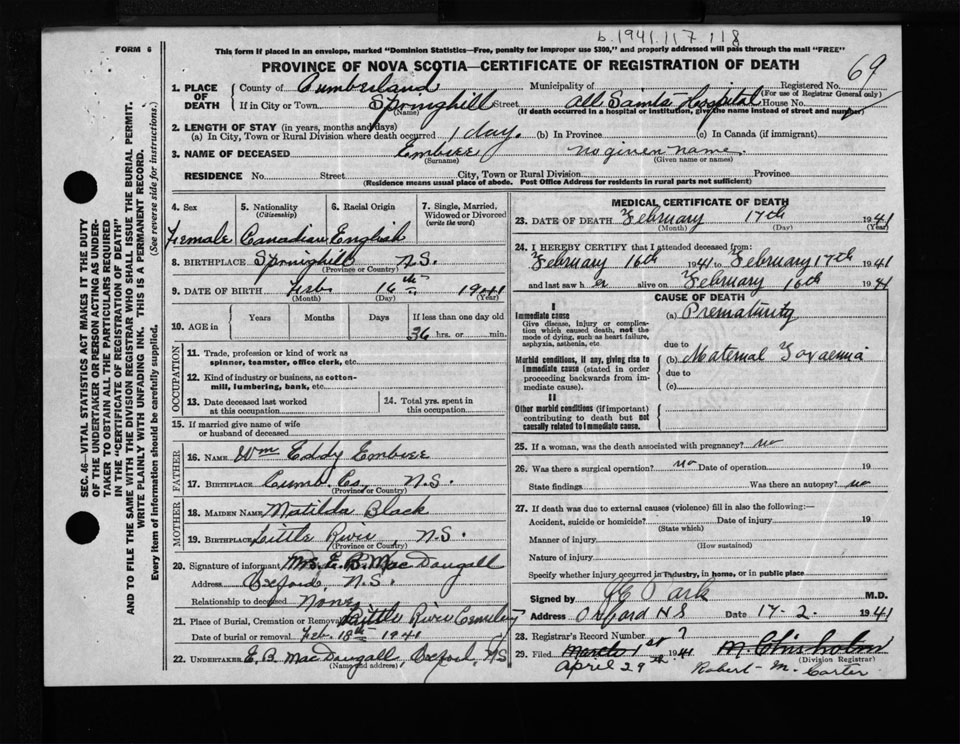 b.1941.117.118
FORM 6
This form if placed in an envelope, marked "Dominion Statistics—Free, penalty for improper use $300," and properly addressed will pass through the mail "FREE"
PROVINCE OF NOVA SCOTIA—CERTIFICATE OF REGISTRATION OF DEATH
69
1. PLACE OF DEATH County of Cumberland Municipality of Registered No. (For use of Registrar General only)
If in City or Town Springhill (Name) Street All Saints Hospital House No.
(If death occurred in a hospital or institution, give the name instead of street and number)
2. LENGTH OF STAY (in years, months and days)
(a) In City, Town or Rural Division where death occurred 1 day. (b) In Province (c) In Canada (if immigrant)
3. NAME OF DECEASED Embree (Surname) no given name. (Given name or names)
RESIDENCE No. Street City, Town or Rural Division Province
(Residence means usual place of abode. Post Office Address for residents in rural parts not sufficient)
4. Sex Female
5. Nationality (Citizenship) Canadian
6. Racial Origin English
7. Single, Married, Widowed or Divorced (write the word)
8. BIRTHPLACE Springhill N.S. (Province or Country)
9. DATE OF BIRTH Feb (Month) 16th (Day) 1941 (Year)
10. AGE in Years Months Days If less than one day 36 hrs. or min.
OCCUPATION
11. Trade, profession or kind of work as spinner, teamster, office clerk, etc.
12. Kind of industry or business, as cotton-mill, lumbering, bank, etc.
13. Date deceased last worked at this occupation
14. Total yrs. spent in this occupation
15. If married give name of wife or husband of deceased
FATHER
16. Name Wm Eddy Embree
17. BIRTHPLACE Cumb. Co. N.S. (Province or Country)
MOTHER
18. MAIDEN NAME Matilda Black
19. BIRTHPLACE Little River N.S. (Province or Country)
20. Signature of informant Mrs. E. B. MacDougall
Address Oxford, N.S.
Relationship to deceased None
21. Place of Burial, Cremation or Removal Little River Cemetery
Date of burial or removal Feb. 18th 1941
22. UNDERTAKER E. B. MacDougall, Oxford, NS (Name and address)
MEDICAL CERTIFICATE OF DEATH
23. DATE OF DEATH February (Month) 17th (Day) 1941 (Year)
24. I HEREBY CERTIFY that I attended deceased from:
February 16th 1941 to February 17th 1941
and last saw her alive on February 16th 1941
CAUSE OF DEATH
I
Immediate cause
Give disease, injury or complication which caused death, not the mode of dying, such as heart failure, asphyxia, asthenia, etc.
(a) Prematurity
due to
Morbid conditions, if any, giving rise to immediate cause (stated in order proceeding backwards from immediate cause).
(b) Maternal Toxaemia
due to
(c)
II
Other morbid conditions (if important) contributing to death but not causally related to immediate cause.
25. If a woman, was the death associated with pregnancy? no
26. Was there a surgical operation? no Date of operation 19
State findings Was there an autopsy? no
27. If death was due to external causes (violence) fill in also the following:—
Accident, suicide or homicide? (State which) Date of injury 19
Manner of injury (How sustained)
Nature of injury
Specify whether injury occurred in industry, in home, or in public place
Signed by M.D.
Address Oxford N S Date 17-2. 1941
28. Registrar's Record Number ?
29. Filed March 1st 1941 M. Chisholm (Division Registrar)
April 29th Robert M. Carter
SEC. 46—VITAL STATISTICS ACT MAKES IT THE DUTY
OF THE UNDERTAKER OR PERSON ACTING AS UNDERTAKER TO OBTAIN ALL THE PARTICULARS REQUIRED
IN THE "CERTIFICATE OF REGISTRATION OF DEATH"
AND TO FILE THE SAME WITH THE DIVISION REGISTRAR WHO SHALL ISSUE THE BURIAL PERMIT.
WRITE PLAINLY WITH UNFADING INK. THIS IS A PERMANENT RECORD.
Every item of Information should be carefully supplied. (See reverse side for instructions.)